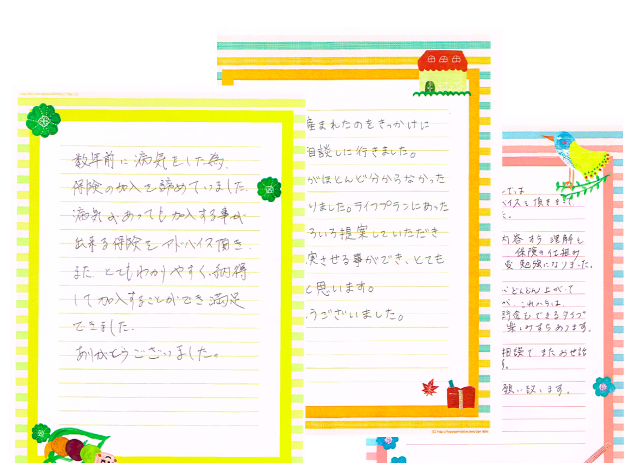 数年前に病気をした為、
保険の加入を諦めていました。
病気があっても加入する事が
出来る保険をアドバイス頂き
また とてもわかりやすく、納得
して加入することができ満足
できました。
ありがとうございました。
産まれたのをきっかけに
相談しに行きました。
がほとんど分からなかった
りました。ライフプランにあった
ろいろ提案していただき
実させる事ができ、とても
と思います。
うございました。
では
バイスを頂きまし
た。
内容すら理解し
保険の仕組み
変勉強になりました。
どんどん上がって
が、これからは
貯金もできるタイプ
楽しみすらあります。
相談で またお世話
願い致します。